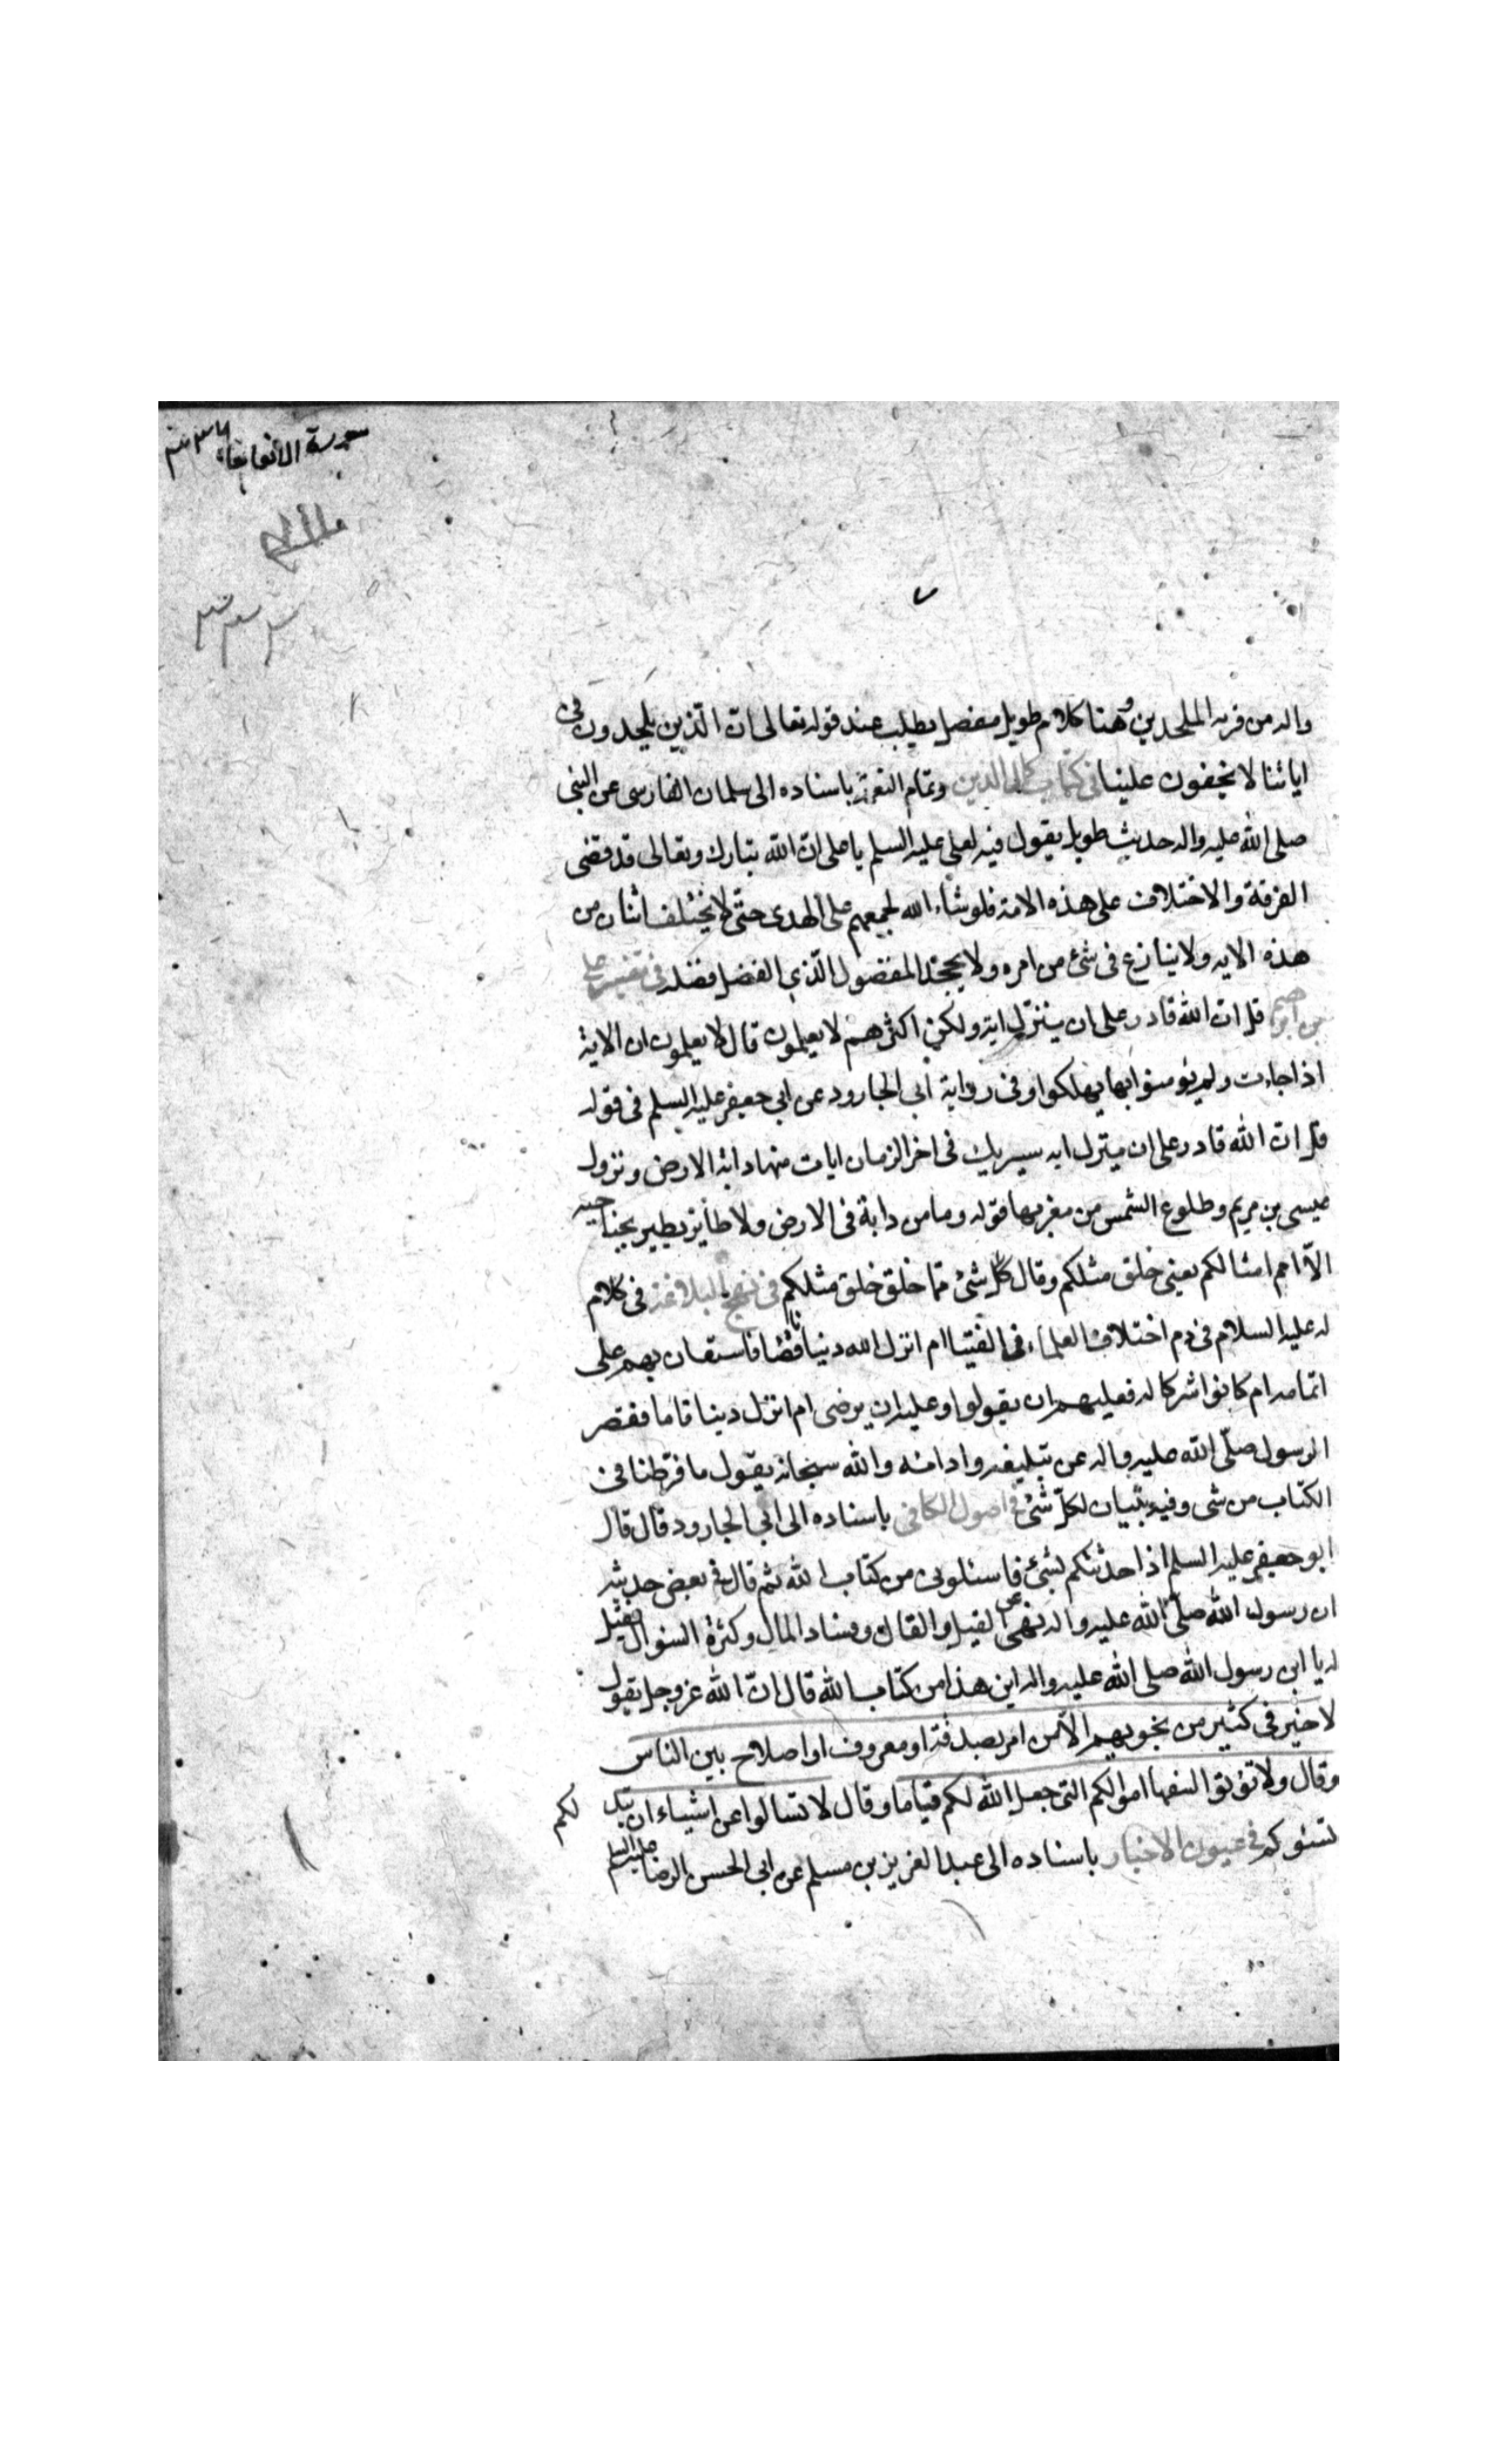 واله من فرية الملحدين وهنا كلام طويل مفصل يطلب عند قوله تعالى ان الذين يلحدون فى
اياتنا لا يخفون علينا فى كتاب كمال الدين وتمام النعمة باسناده الى سلمان الفارسى عن النبى
صلى الله عليه واله حديث طويل يقول فيه لعلى عليه السلم يا على ان الله تبارك وتعالى قد قضى
الفرقة والاختلاف على هذه الامة فلو شاء الله لجمعهم على الهدى حتى لا يختلف اثنان من
هذه الايه ولا ينازع فى شئ من امره ولا يجحد المفضول الذى الفضل فضله فى تفسير على
بن ابرهيم قل ان الله قادر على ان ينزل اية ولكن اكثرهم لا يعلمون قال لا يعلمون ان الاية
اذا جاءت ولم يؤمنوا بها يهلكوا وفى رواية ابى الجارود عن ابى جعفر عليه السلم فى قوله
قل ان الله قادر على ان ينزل ايه سيريك فى اخر الزمان ايات منها دابة الارض ونزول
عيسى بن مريم وطلوع الشمس من مغربها قوله وما من دابة فى الارض ولا طائر يطير بجناحيه
الا امم امثالكم يعنى خلق مثلكم وقال كل شئ مما خلق خلق مثلكم فى نهج البلاغة فى كلام
له عليه السلام فى ذم اختلاف العلماء فى الفتيا ام انزل الله دينا ناقصا فاستعان بهم على
اتمامه ام كانوا شركا له فعليهم ان يقولوا وعليه ان يرضى ام انزل دينا تاما فقصر
الرسول صلى الله عليه واله عن تبليغه وادائه والله سبحانه يقول ما فرطنا فى
الكتاب من شى وفيه تبيان لكل شئ فى اصول الكافى باسناده الى ابى الجارود قال قال
ابو جعفر عليه السلم اذا حدثتكم بشئ فاسئلونى من كتاب الله ثم قال فى بعض حديثه
ان رسول الله صلى الله عليه واله نهى عن القيل والقال وفساد المال وكثرة السؤال فقيل
له يا ابن رسول الله صلى الله عليه واله اين هذا من كتاب الله قال ان الله عز وجل يقول
لا خير فى كثير من نجويهم الا من امر بصدقة او معروف او اصلاح بين الناس
وقال ولا تؤتوا السفها اموالكم التى جعل الله لكم قياما وقال لا تسالوا عن اشياء ان تبد لكم
تسؤكم فى عيون الاخبار باسناده الى عبد العزيز بن مسلم عن ابى الحسن الرضا عليه السلم